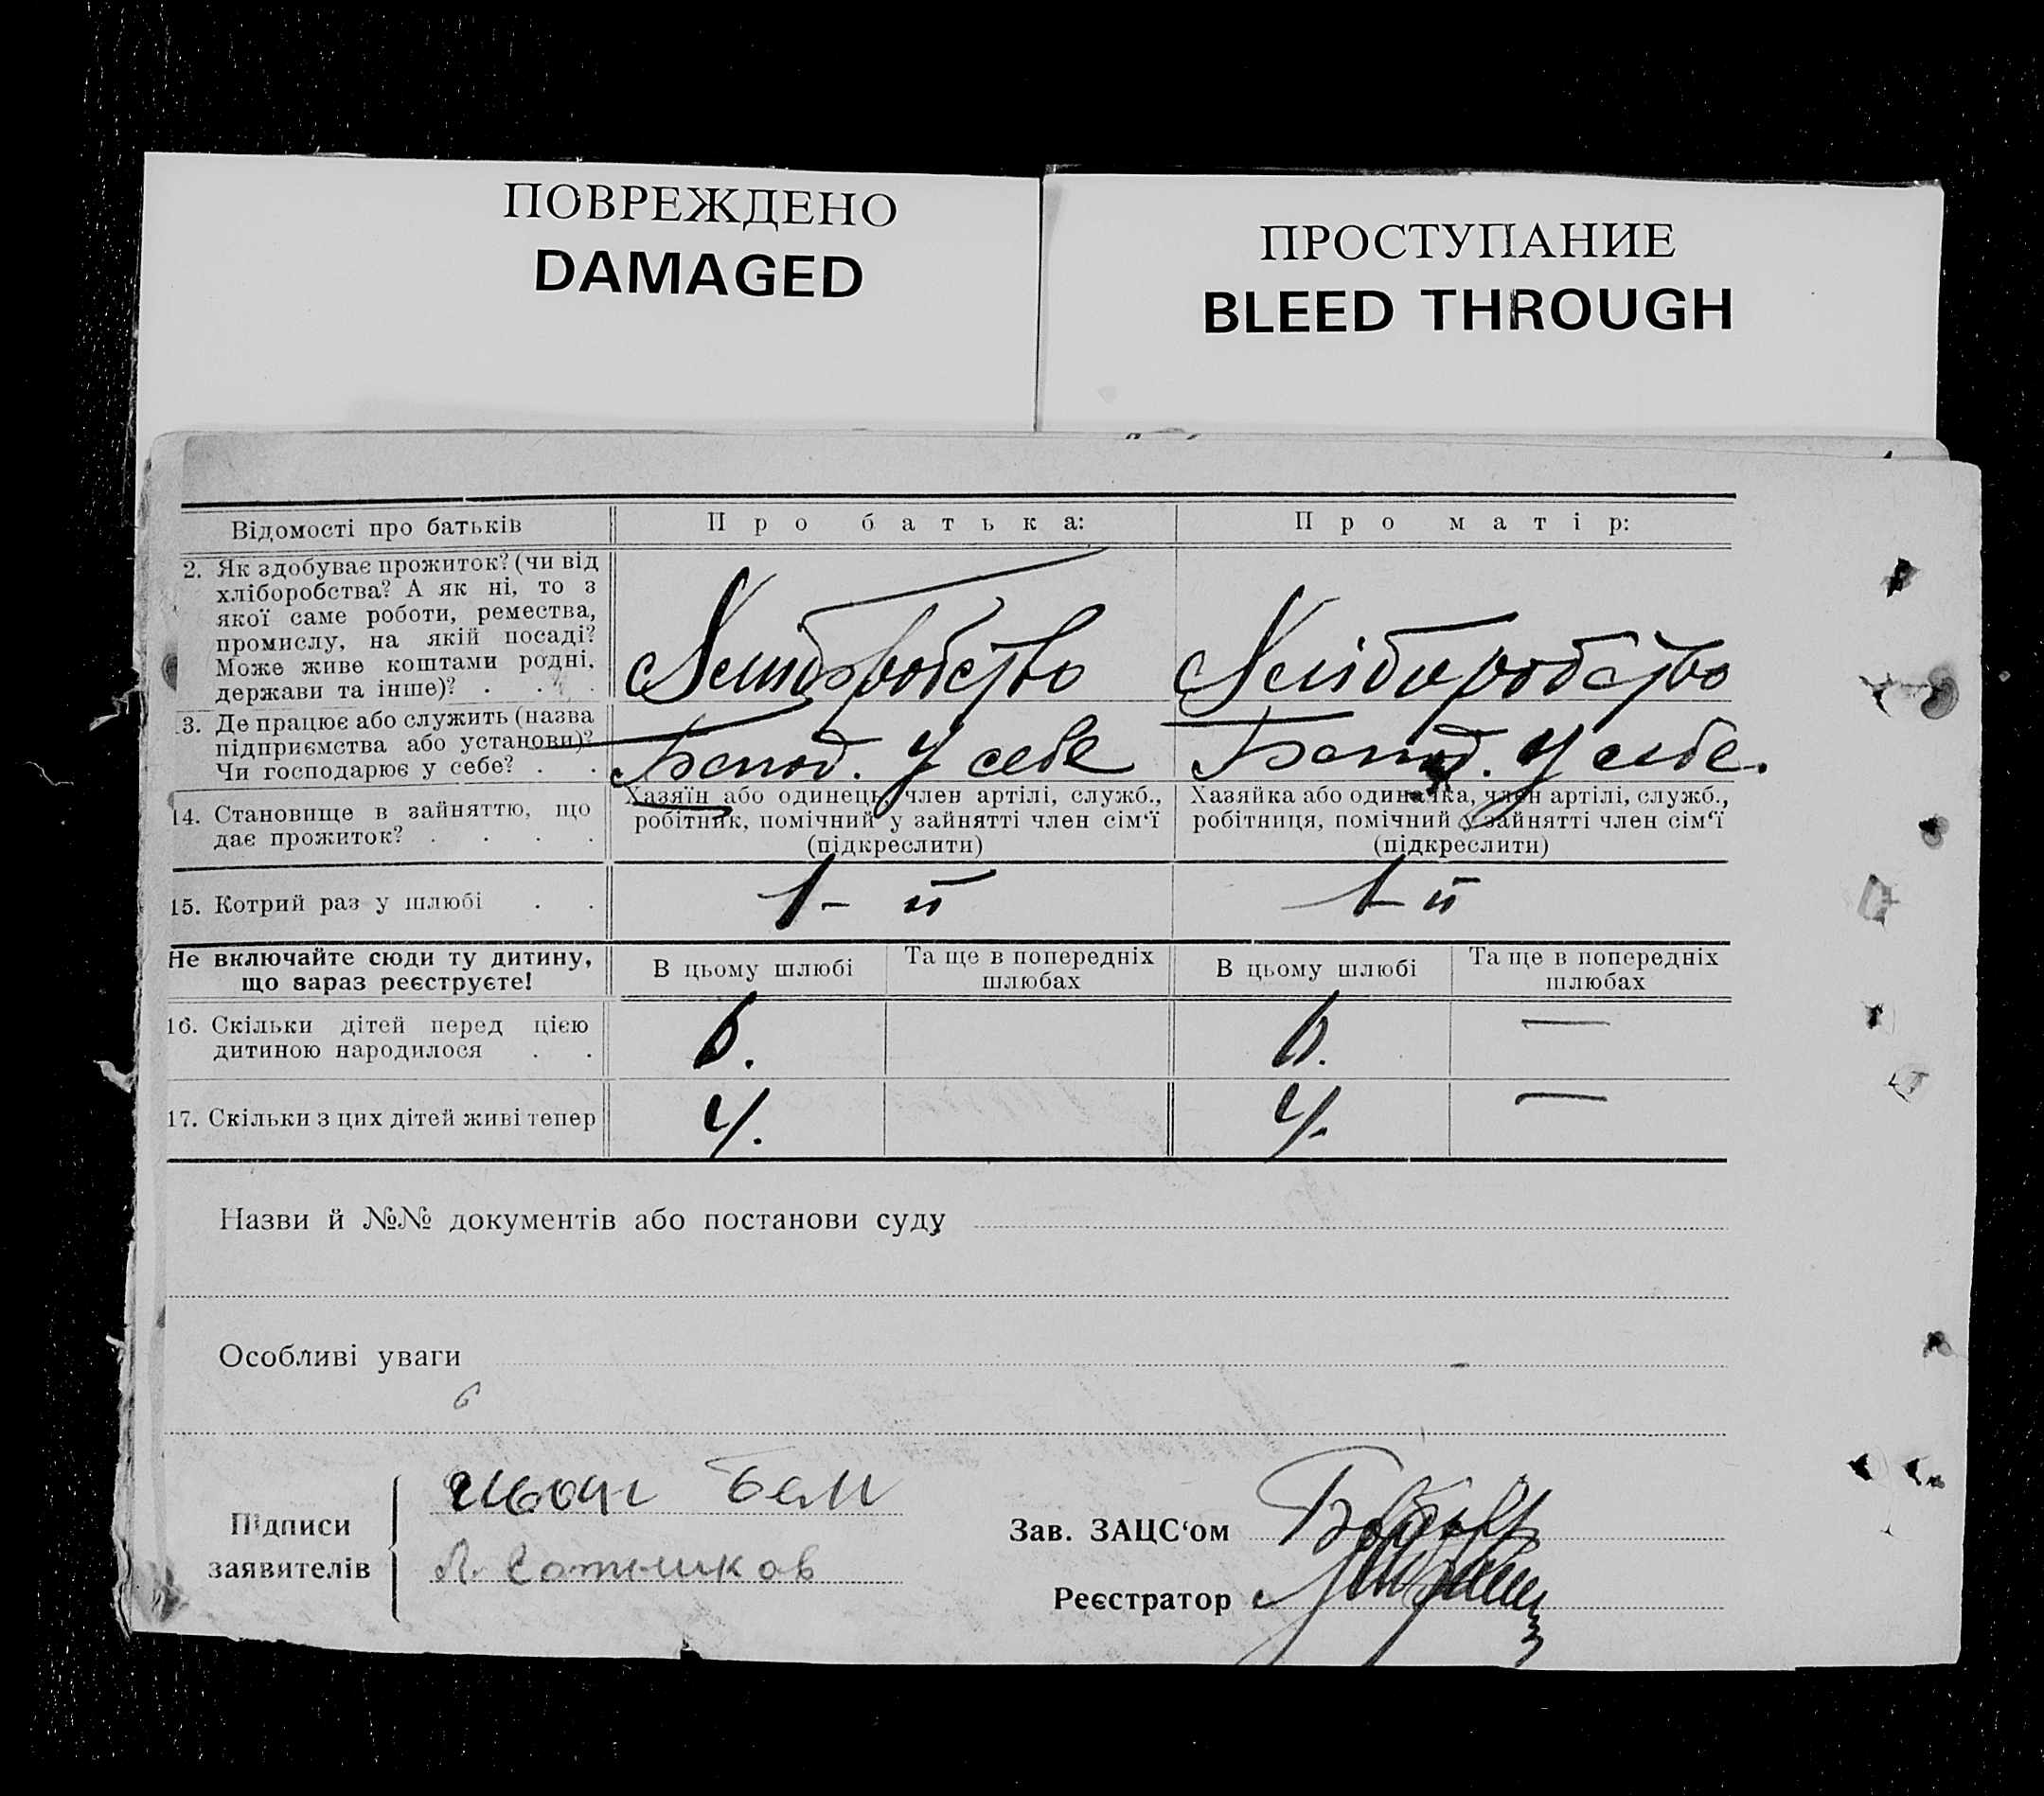 ПОВРЕЖДЕНО
DAMAGED
ПРОСТУПАНИЕ
BLEED THROUGH
Відомості про батьків
Про батька:
Про матір:
2. Як здобуває прожиток? (чи від
хліборобства? А як ні, то з
якої саме роботи, ремества,
промислу, на якій посаді?
Може живе коштами родні,
держави та інше)? . . .
Хліборобство
Хліборобство
3. Де працює або служить (назва
підприємства або установи)?
Чи господарює у себе? . .
у себе
у себе.
14. Становище в зайняттю, що
дає прожиток? . . . .
Хазяїн або одинець, член артілі, служб.,
робітник, помічний у зайнятті член сім‘ї
(підкреслити)
Хазяйка або одиначка, член артілі, служб.,
робітниця, помічний у зайнятті член сім‘ї
(підкреслити)
15. Котрий раз у шлюбі . .
1-й
1-й
Не включайте сюди ту дитину,
що зараз реєструєте!
В цьому шлюбі
Та ще в попередніх
шлюбах
В цьому шлюбі
Та ще в попередніх
шлюбах
16. Скільки дітей перед цією
дитиною народилося . .
6.
6.
—
17. Скільки з цих дітей живі тепер
4.
4.
—
Назви й №№ документів або постанови суду
Особливі уваги
Підписи
заявителів
Иван Бем
Л. Сотников
Зав. ЗАЦС‘ом
Реєстратор